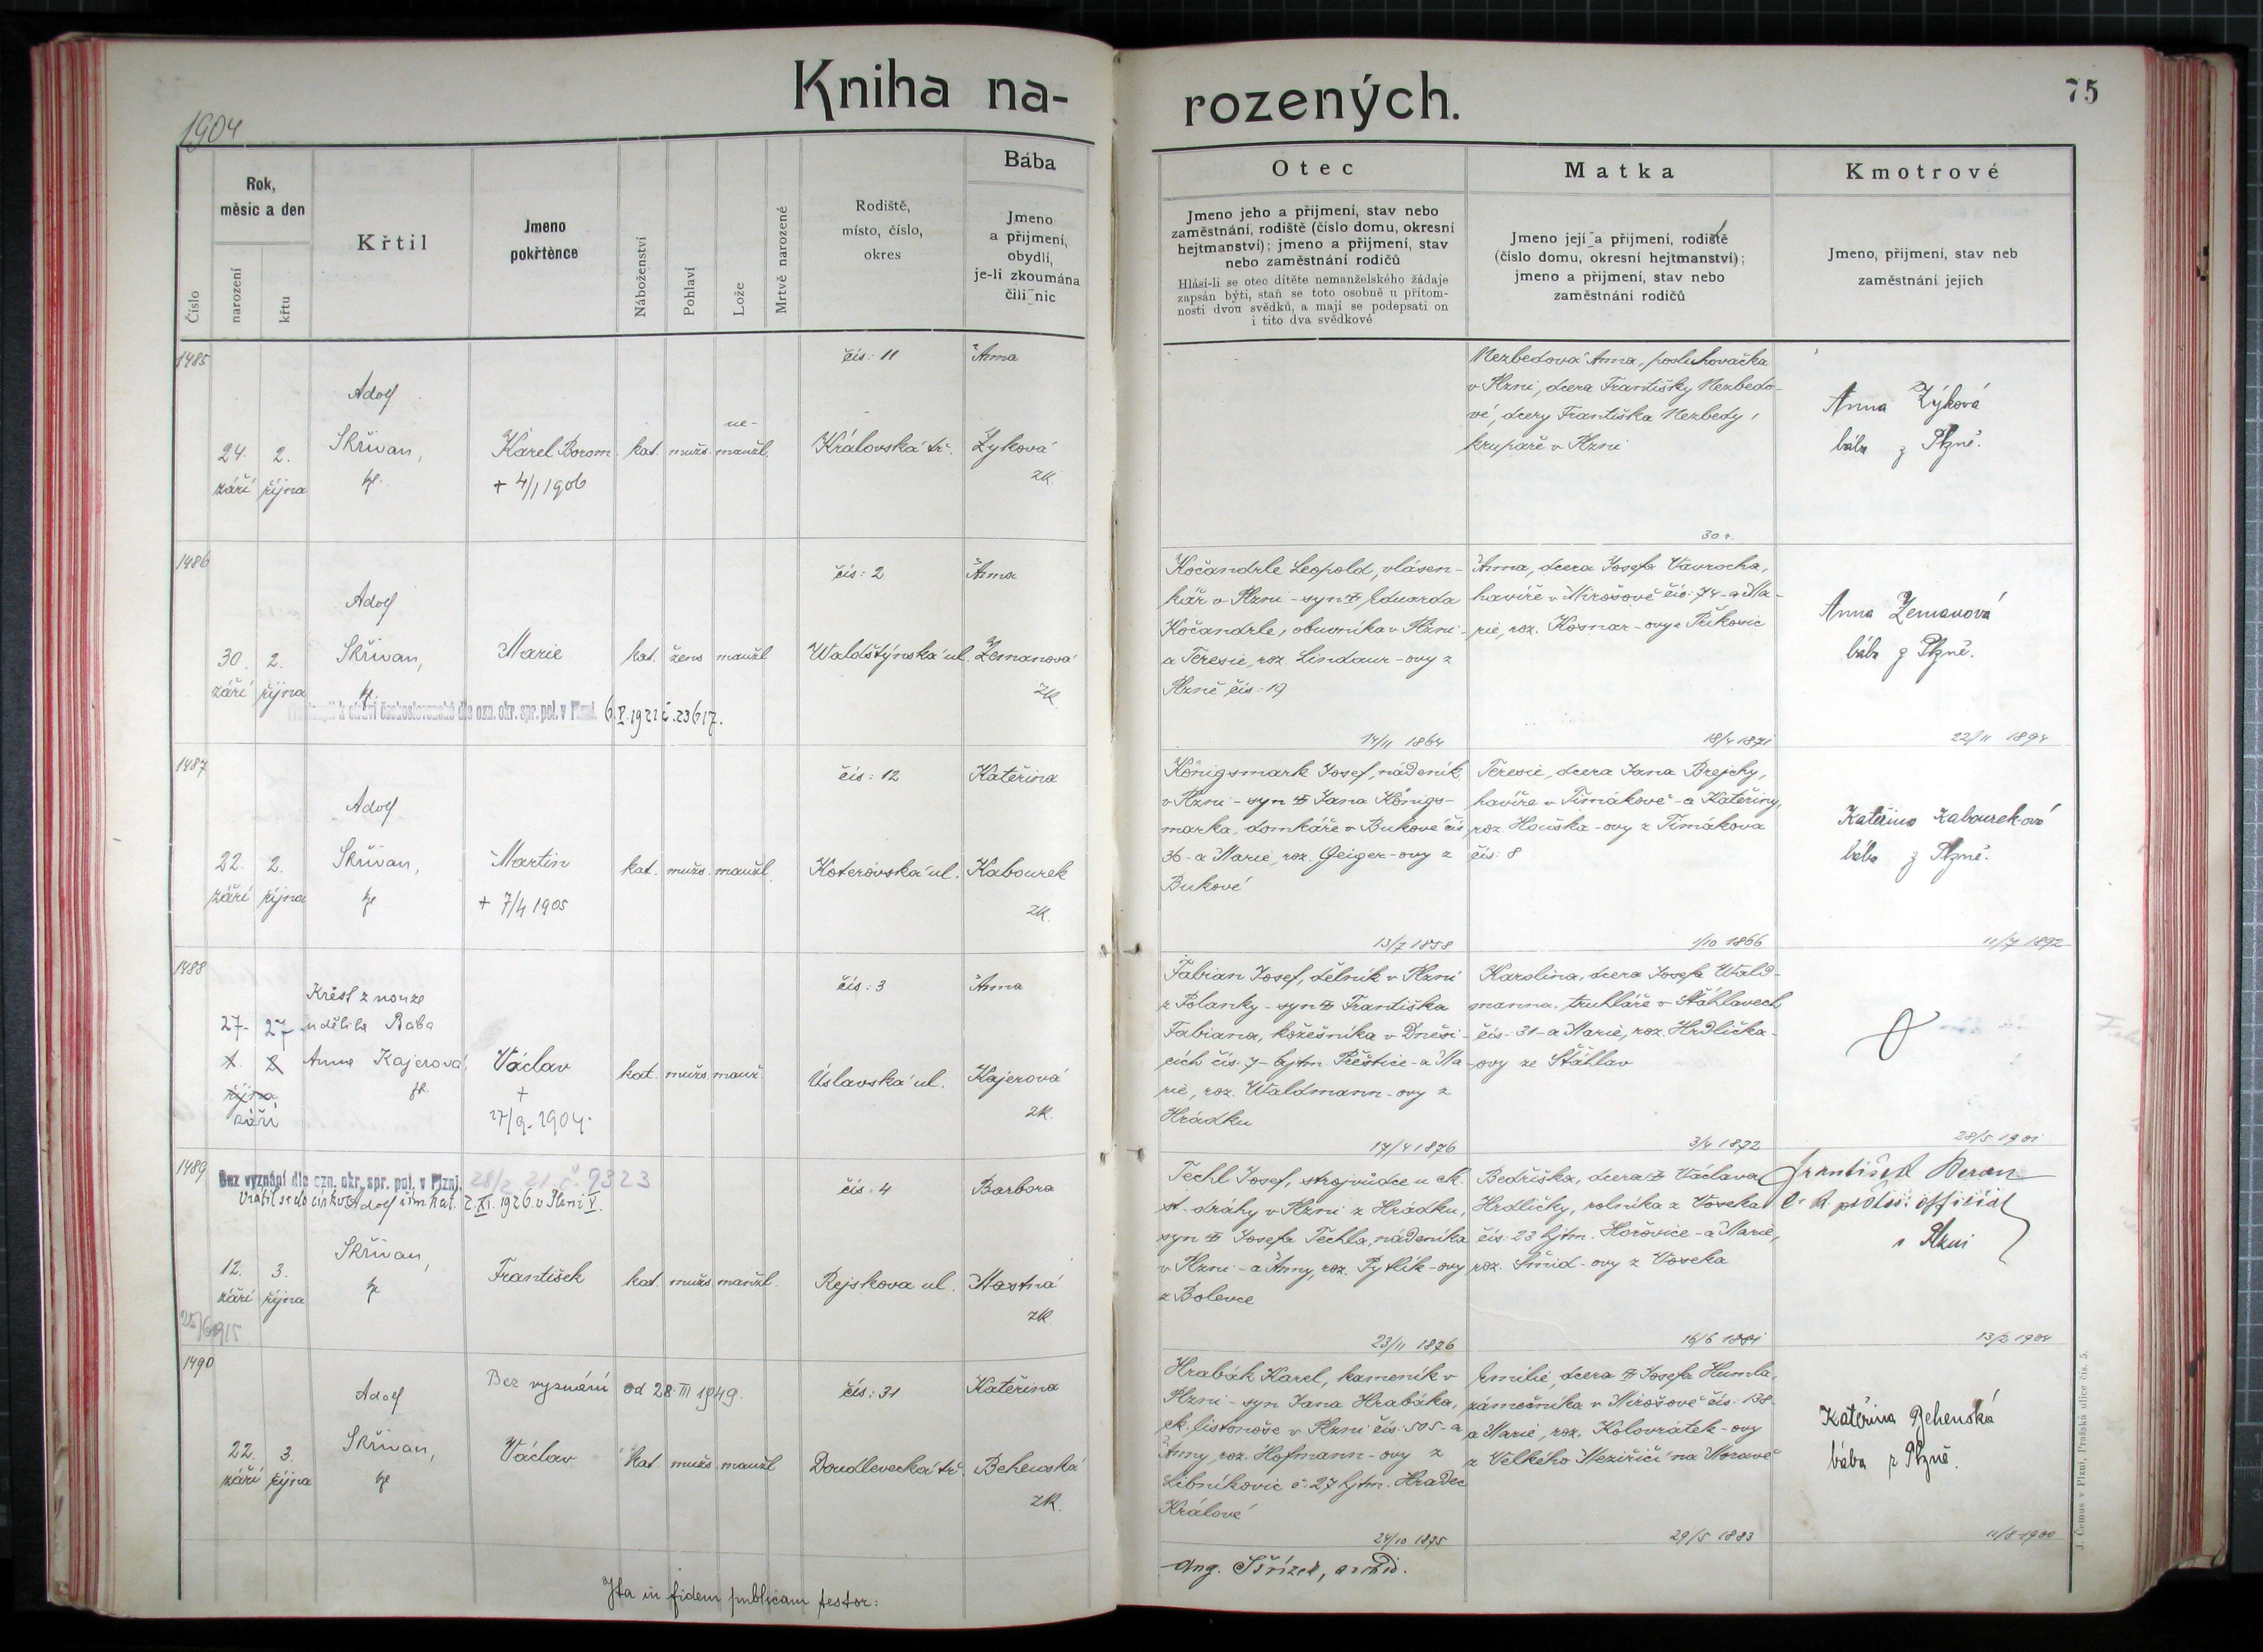 Kniha na-
rozených.
75
1904
Číslo
Rok,
měsíc a den
narození
křtu
Křtil
Jmeno
pokřtěnce
Náboženství
Pohlaví
Lože
Mrtvě narozené
Rodiště,
místo, číslo,
okres
Bába
Jmeno
a přijmení,
obydlí,
je-li zkoumána
čili nic
Otec
Jmeno jeho a přijmení, stav nebo
zaměstnání, rodiště (číslo domu, okresní
hejtmanství); jmeno a přijmení, stav
nebo zaměstnání rodičů
Hlásí-li se otec dítěte nemanželského žádaje
zapsán býti, staň se toto osobně u přítom-
nosti dvou svědků, a mají se podepsati on
i tito dva svědkové
Matka
Jmeno její a přijmení, rodiště
(číslo domu, okresní hejtmanství);
jmeno a přijmení, stav nebo
zaměstnání rodičů
Kmotrové
Jmeno, přijmení, stav neb
zaměstnání jejich
1485
24.
září
2.
října
Adolf
Skřivan,
Karel Borom.
+ 4/1 1906
kat.
mužs.
ne-
manžl.
čís: 11
Královská tř.
Anna
Zyková
zk.
Nezbedová Anna, posluhovačka
v Plzni, dcera Františky Nezbedo-
vé, dcery Františka Nezbedy,
krupaře v Plzni
30 r.
Anna Zýková
bába z Plzně.
1486
30.
září
2.
října
Adolf
Skřivan,
Marie
kat.
žens
manžl
čís: 2
Waldštýnská ul.
Anna
Zemanová
zk.
k církvi československé dle ozn. okr. spr. pol. v Plzni. 6.V.1921 č.23617.
Kočandrle Leopold, vlásen-
kář v Plzni - syn Eduarda
Kočandrle, obuvníka v Plzni -
a Teresie, roz. Lindaur-ovy z
Plzně čís: 19
14/11 1864
Anna, dcera Josefa Vavrocha,
havíře v Mirošově čís: 74 - a Ma-
rie, roz. Kosnar-ovy z
18/4 1871
Anna Zemanová
bába z Plzně.
22/11 1894
1487
22.
září
2.
října
Adolf
Skřivan,
Martin
+ 7/4 1905
kat.
mužs.
manžl.
čís: 12
Koterovská ul.
Kateřina
Kabourek
zk.
Königsmark Josef, nádeník
v Plzni - syn Jana Königs-
marka, domkáře v Bukové čís
36 - a Marie, roz. Geiger-ovy z
Bukové
13/7 1858
Teresie, dcera Jana Brejchy,
havíře v Timákově - a Kateřiny,
roz. Houška-ovy z Timákova
čís: 8
1/10 1866
Kateřina Kabourek-ová
bába z Plzně.
11/7 1892
1488
27.
září
27
Křest z nouze
udělila Bába
Anna Kajerová,
Václav
+
27/9. 1904.
kat.
mužs.
manž.
čís: 3
Úslavská ul.
Anna
Kajerová
zk.
Fabian Josef, dělník v Plzni
z Polanky - syn Františka
Fabiana, kožešníka v Dneši-
cích čís: 7 - hjtm. Přeštice - a Ma-
rie, roz. Waldmann-ovy z
Hrádku
17/4 1876
Karolina, dcera Josefa Wald-
manna, truhláře v Štáhlavech
čís: 31 - a Marie, roz. Hrdlička-
ovy ze Štáhlav
3/4 1872
28/5 1901
1489
Bez vyznání dle ozn. okr. spr. pol. v Plzni. 28/2 21. č. 9323
Vrátil se do církve řím. kat. 2.XI.1926 v Plzni V.
12.
září
3.
října
25/6 1915
Adolf
Skřivan,
František
kat.
mužs
manžl.
čís: 4
Rejskova ul.
Barbora
Mostná
zk.
Techl Josef, strojvůdce u ck.
st. dráhy v Plzni z Hrádku,
syn Josefa Techla, nádeníka
v Plzni - a Anny, roz. Pytlík-ovy
z Bolevce
23/11 1876
Bedřiška, dcera Václava
Hrdličky, rolníka z Voseka
čís: 23 hjtm. Hořovice - a Marie,
roz. Šmid-ovy z Voseka
16/6 1881
František Beran
c. k. official
v Plzni
13/2 1904
1490
22.
září
3.
října
Adolf
Skřivan,
Bez vyznání od 28.III 1949.
Václav
kat.
mužs.
manžl
čís: 31
Doudlevecká tř.
Kateřina
Behenská
zk.
Hrabák Karel, kameník v
Plzni - syn Jana Hrabáka,
ck. listonoše v Plzni čís: 505 - a
Anny, roz. Hofmann-ovy z
Libníkovic č: 27 hjtm. Hradec
Králové
24/10 1875
Emilie, dcera Josefa Humla,
zámečníka v Mirošově čís: 138
a Marie, roz. Kolovrátek-ovy
z Velkého Meziříčí na Moravě
29/5 1883
Kateřina Behenská
bába z Plzně.
11/8 1900
Ita in fidem publicam testor:
J. Čemus v Plzni, Pražská ulice čís. 5.